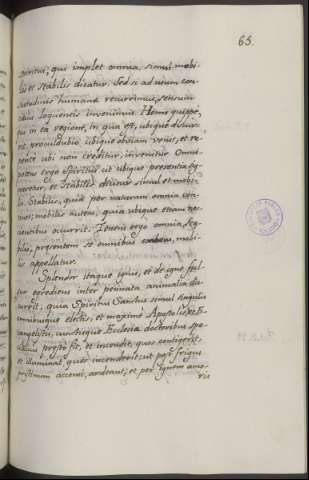 65.
spiritus, qui implet omnia, simul mobi-
lis et stabilis dicatur. Sed si ad usum con-
suetudinis humanæ recurrimus, sensum
citius loquentis invenimus. Homo quippe,
qui in ea regione, in qua est, ubique discur-
rit, pro multitudine ubique obviam venit, et re-
pente ubi non creditur, invenitur. Omni-
potens ergo Spiritus ut ubique præsentia sig-
naretur, et stabilis dicitur simul et mobi-
lis. Stabilis, quia per naturam omnia con-
tinet; mobilis autem, quia ubique etiam nes-
cientibus occurrit. Tenens ergo omnia, sta-
bilis, præsentem se omnibus exhibens, mobi-
lis appellatur.
Splendor itaque ignis, et de igne ful-
gur egrediens inter pennata animalia dis-
currit, quia Spiritus Sanctus simul singulis
omnibusque electis, et maximè Apostolicis et E-
vangelicis, cunctisque Ecclesiæ doctoribus spe-
cialius præsto fit, et incendit, quos contigerit,
et illuminat, quos incendendo; ut post frigus
pristinum accensi, ardeant; et per ignem amo-
ris